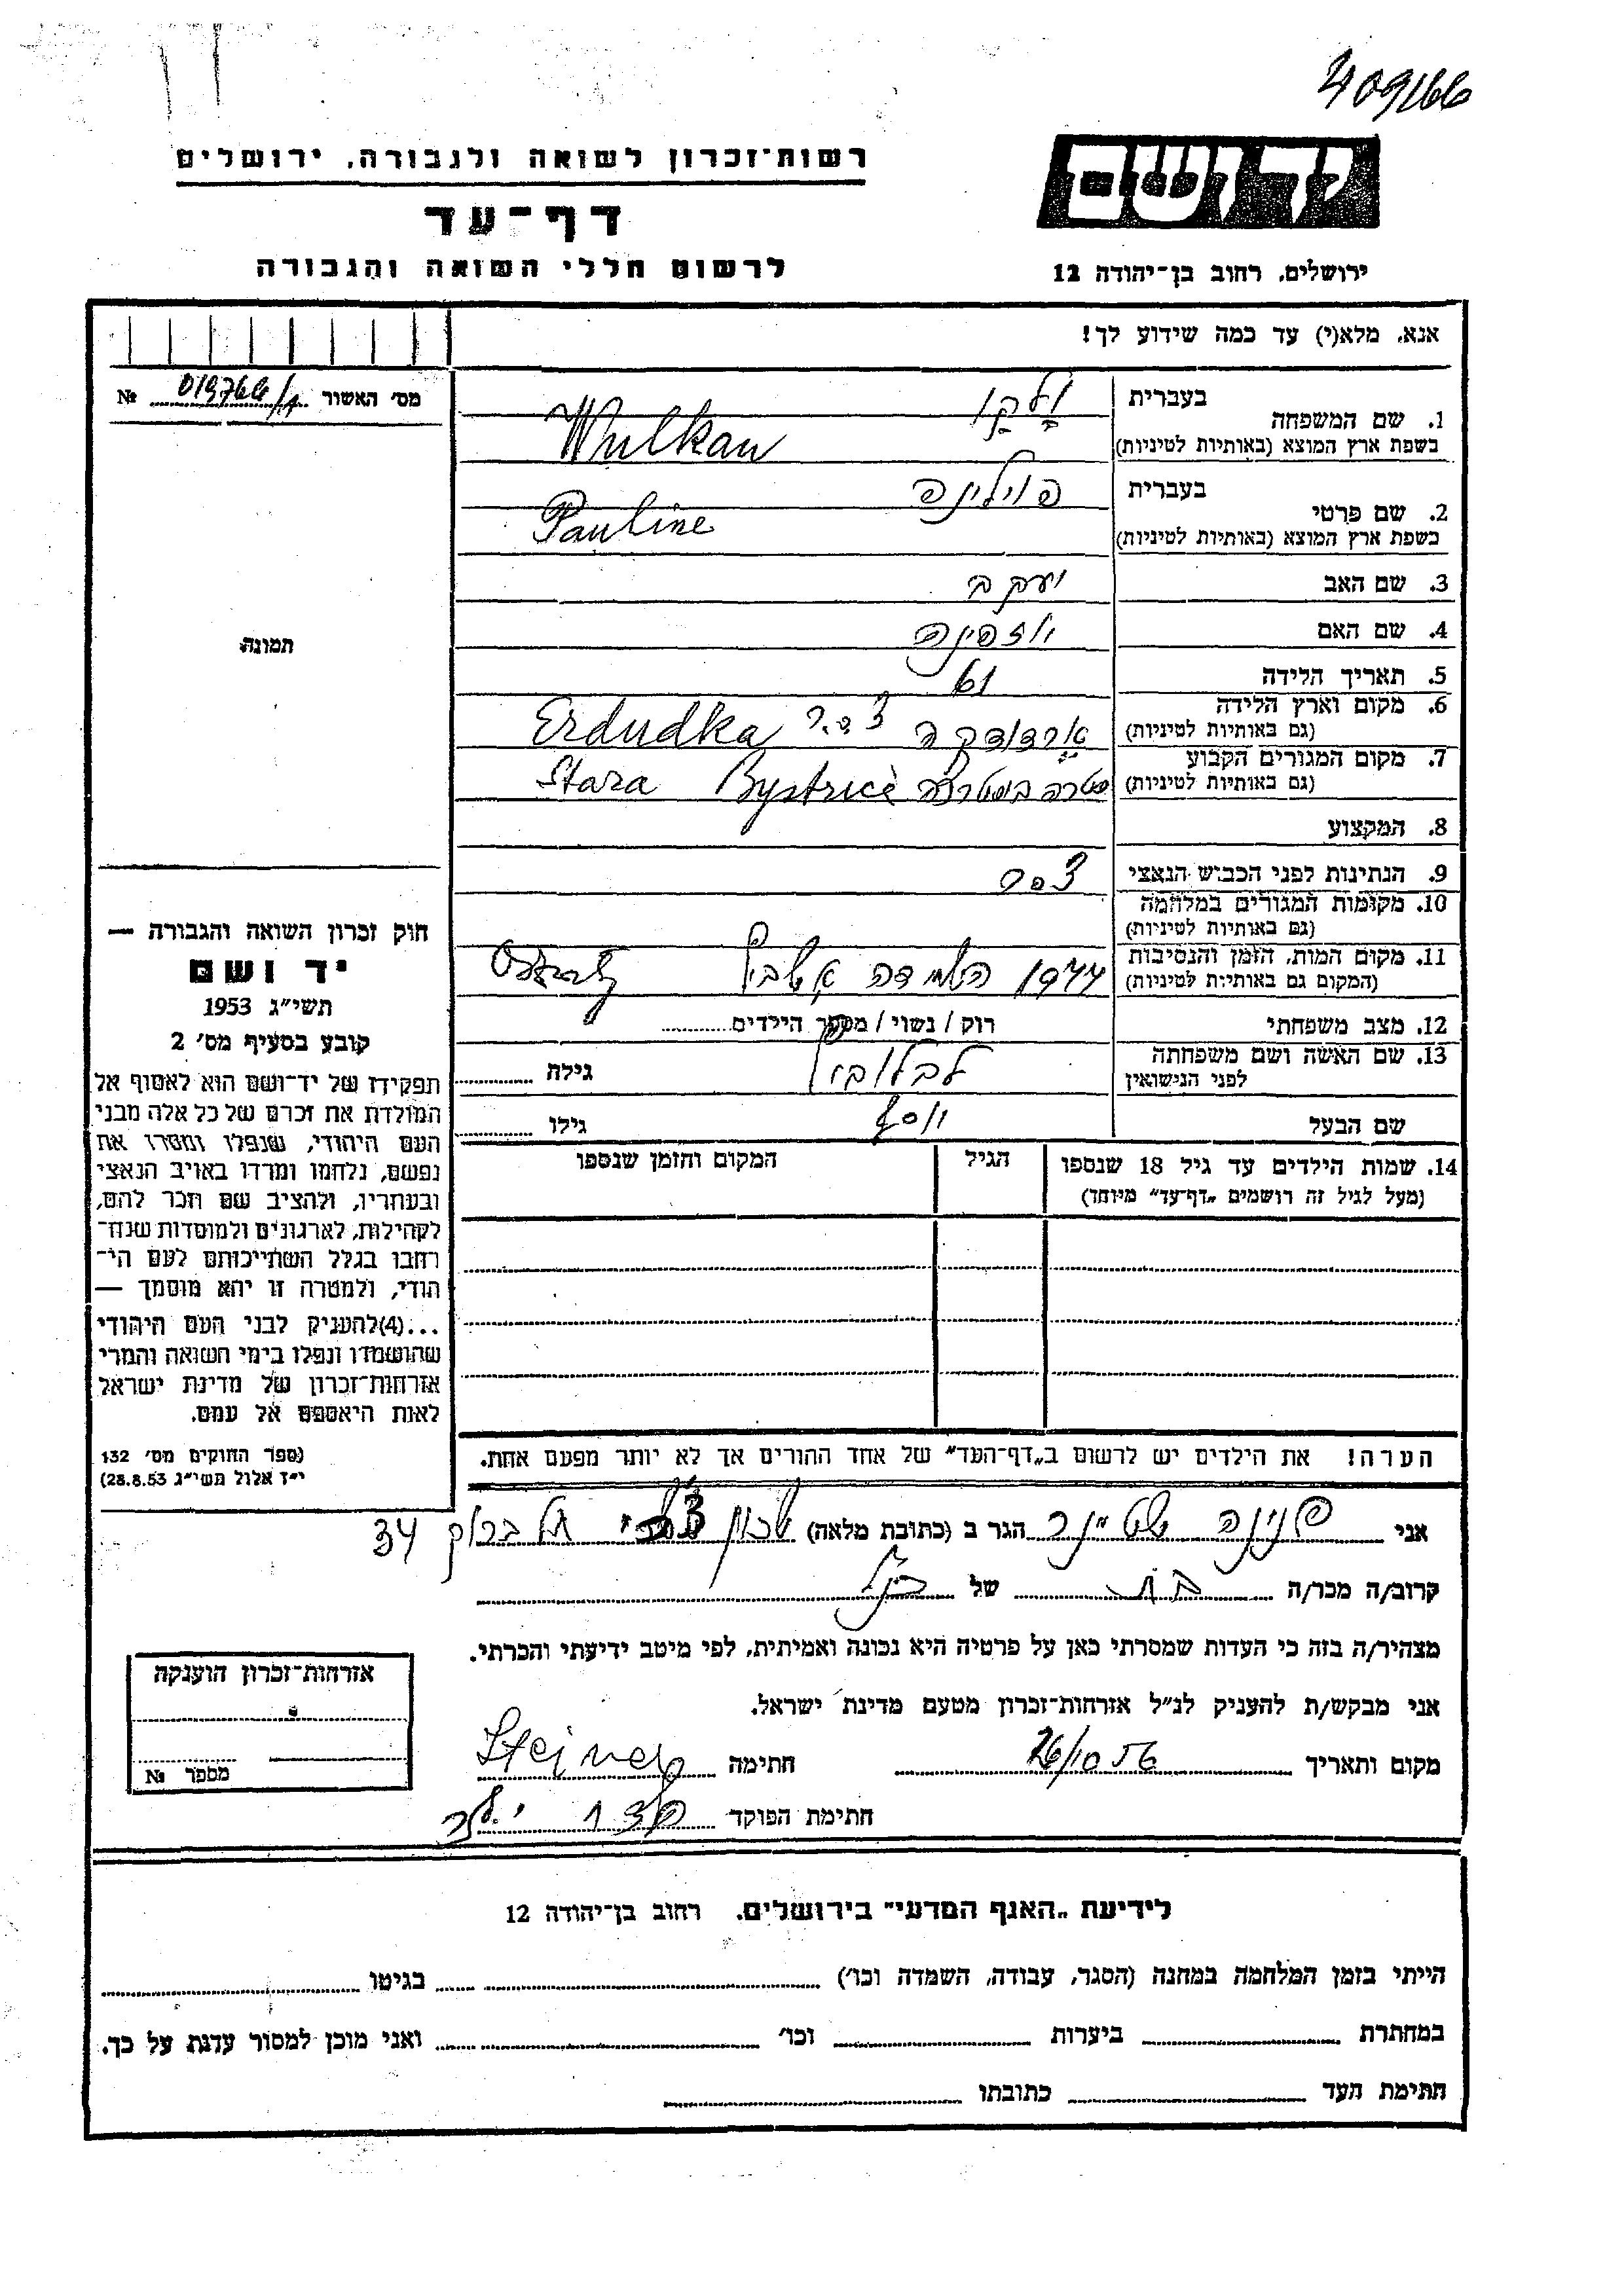 409/66
רשות־זכרון לשואה ולגבורה, ירושלים
דף־עד
לרשום חללי השואה והגבורה
יד ושם
ירושלים, רחוב בן־יהודה 12
אנא, מלא(י) עד כמה שידוע לך!
מס׳ האשור № 019766/1
תמונה
1. שם המשפחה
בעברית ולקן
בשפת ארץ המוצא (באותיות לטיניות) Wulkan
2. שם פרטי
בעברית פוילינה
בשפת ארץ המוצא (באותיות לטיניות) Pauline
3. שם האב יעקב
4. שם האם יוזפינה
5. תאריך הלידה 61
6. מקום וארץ הלידה
(גם באותיות לטיניות) ארדודקה צ.ס.ר Erdudka
7. מקום המגורים הקבוע
(גם באותיות לטיניות) סטרה ביסטריצה Stara Bystricè
8. המקצוע
9. הנתינות לפני הכבוש הנאצי צ.ס.ר
10. מקומות המגורים במלחמה
(גם באותיות לטיניות)
11. מקום המות, הזמן והנסיבות
(המקום גם באותיות לטיניות) 1944 השמדה
12. מצב משפחתי רוק / נשוי / מספר הילדים
13. שם האשה ושם משפחתה
לפני הנישואין גילה
שם הבעל יוסף גילו
14. שמות הילדים עד גיל 18 שנספו
(מעל לגיל זה רושמים „דף־עד״ מיוחד)
הגיל
המקום והזמן שנספו
הערה! את הילדים יש לרשום ב„דף־העד״ של אחד ההורים אך לא יותר מפעם אחת.
חוק זכרון השואה והגבורה —
יד ושם
תשי״ג 1953
קובע בסעיף מס׳ 2
תפקידו של יד־ושם הוא לאסוף אל
המולדת את זכרם של כל אלה מבני
העם היהודי, שנפלו ומסרו את
נפשם, נלחמו ומרדו באויב הנאצי
ובעוזריו, ולהציב שם וזכר להם,
לקהילות, לארגונים ולמוסדות שנח־
רבו בגלל השתייכותם לעם הי־
הודי, ולמטרה זו יהא מוסמך —
...(4) להעניק לבני העם היהודי
שהושמדו ונפלו בימי השואה והמרי
אזרחות־זכרון של מדינת ישראל
לאות היאספם אל עמם.
(ספר החוקים מס׳ 132
י״ז אלול תשי״ג 28.8.53)
אני שטיינר הגר ב (כתובת מלאה) שכון 34
קרוב/ה מכר/ה בת של הנ״ל
מצהיר/ה בזה כי העדות שמסרתי כאן על פרטיה היא נכונה ואמיתית, לפי מיטב ידיעתי והכרתי.
אני מבקש/ת להעניק לנ״ל אזרחות־זכרון מטעם מדינת ישראל.
מקום ותאריך 26/10 56 חתימה Steiner
חתימת הפוקד
אזרחות־זכרון הוענקה
מספר №
לידיעת „האגף המדעי״ בירושלים, רחוב בן־יהודה 12
הייתי בזמן המלחמה במחנה (הסגר, עבודה, השמדה וכו׳) בגיטו
במחתרת ביערות וכו׳ ואני מוכן למסור עדות על כך.
חתימת העד כתובתו